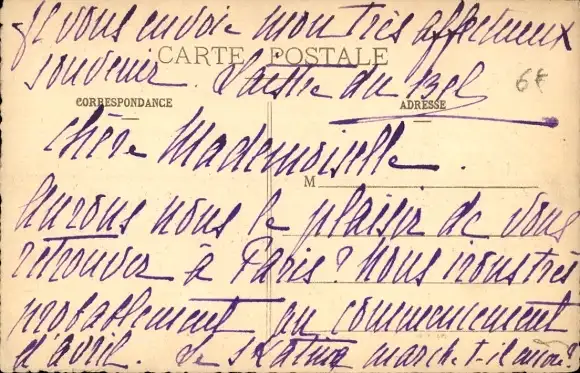 je vous envoie mon très affectueux
CARTE POSTALE
souvenir. du
6€
CORRESPONDANCE
ADRESSE
Chère Mademoiselle.
M
Aurons nous le plaisir de vous
retrouver à Paris? Nous irons très
probablement au commencement
d'avril. Le skating marche t-il encore?